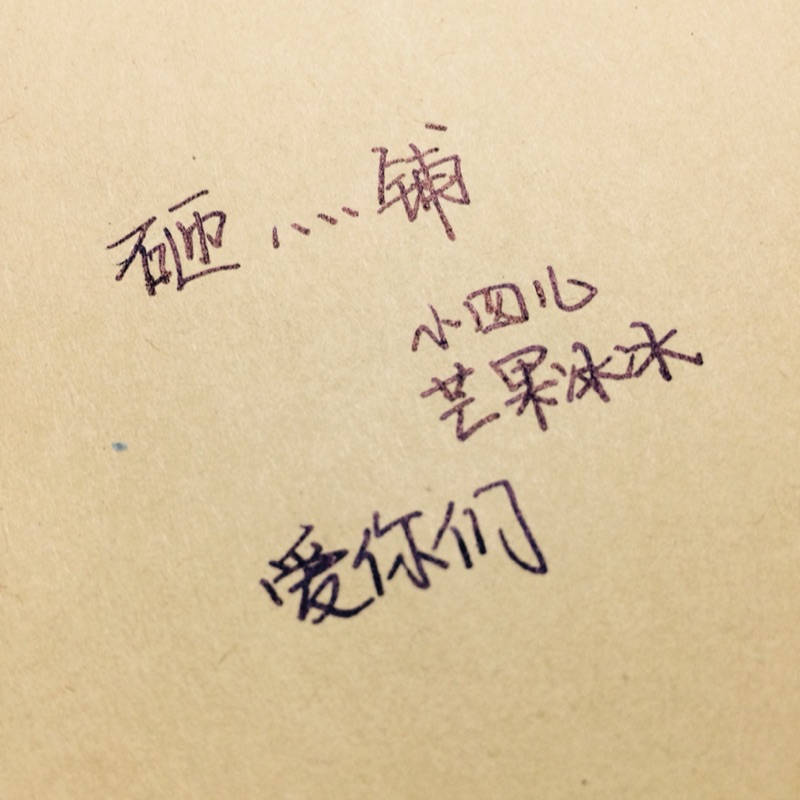 砸灬铺
小四儿
芒果冰冰
爱你们